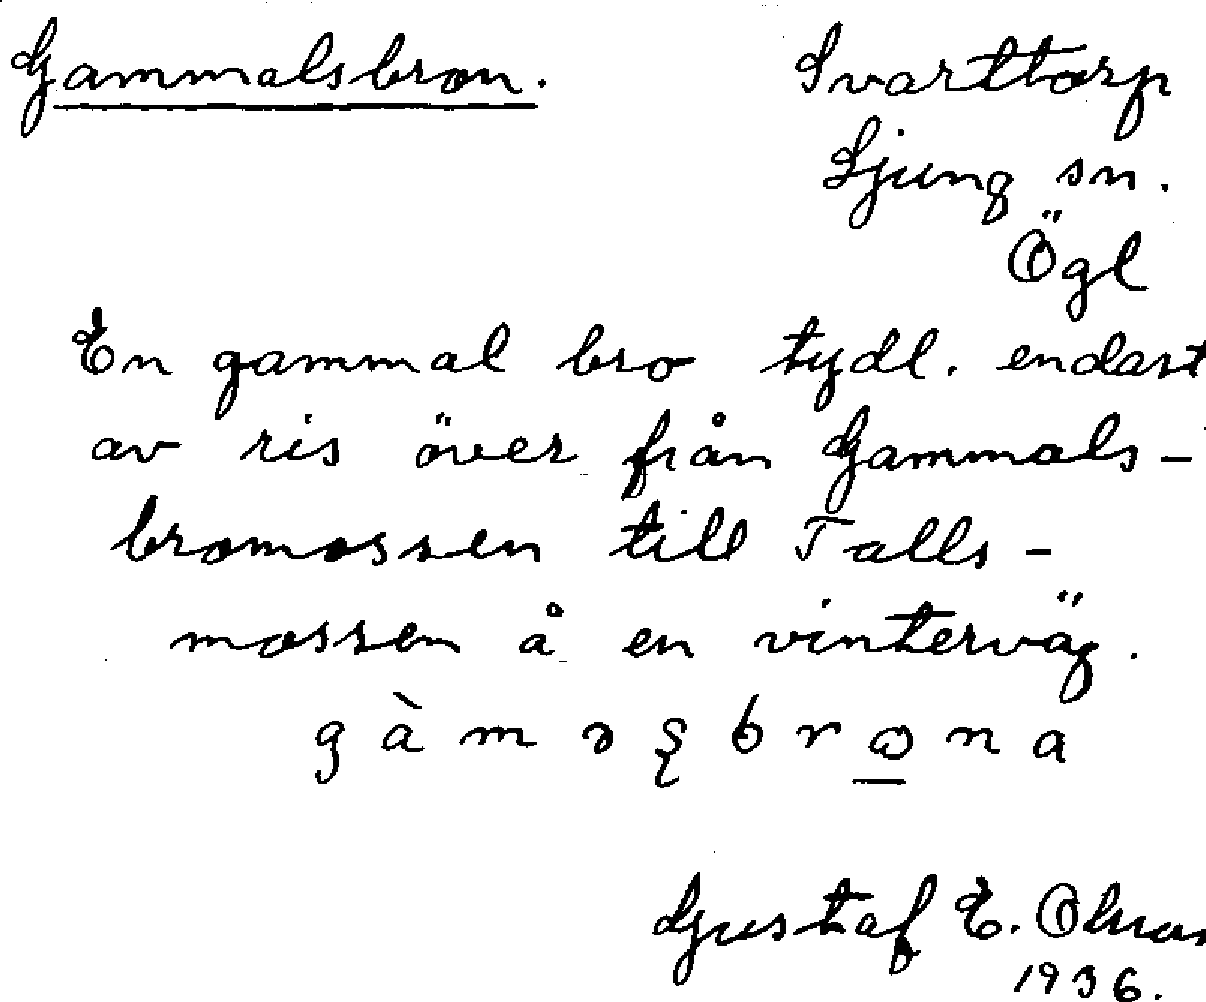 Gammalsbron.
Svarttorp
Ljung sn.
Ögl
En gammal bro tydl. endast
av ris över från Gammals-
bromossen till Talls-
mossen å en vinterväg.
gàməşbrꙍna
Gustaf E.
1936.